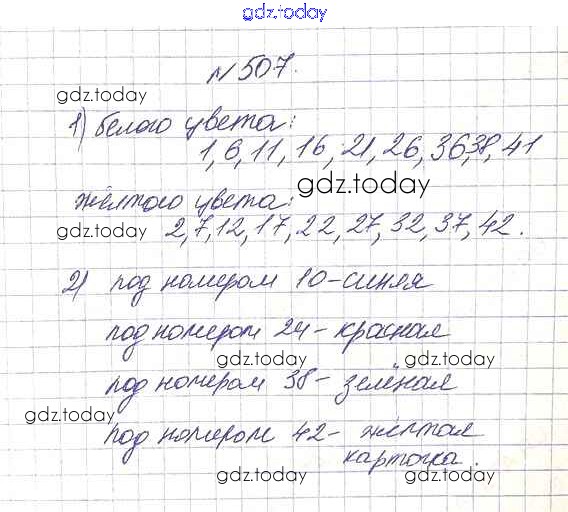 gdz.today
№ 507.
gdz.today
1) белого цвета:
1, 6, 11, 16, 21, 26, 36, 38, 41
gdz.today
жёлтого цвета:
gdz.today 2, 7, 12, 17, 22, 27, 32, 37, 42.
2) под номером 10 - синяя
под номером 24 - красная
gdz.today gdz.today
под номером 38 - зелёная
gdz.today
под номером 42 - жёлтая
карточка.
gdz.today gdz.today